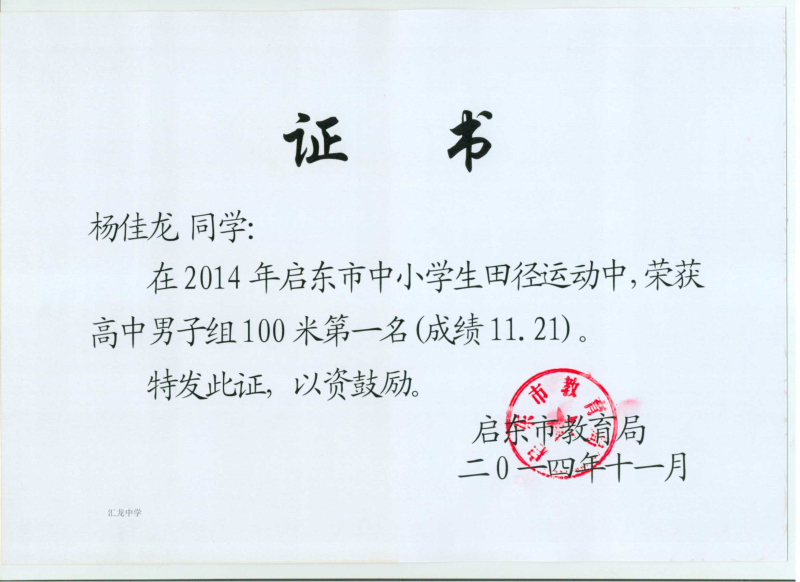 证 书
杨佳龙 同学:
在2014年启东市中小学生田径运动中,荣获
高中男子组100米第一名(成绩11.21)。
特发此证, 以资鼓励。
启东市教育局
启东市教育局
二0一四年十一月
汇龙中学